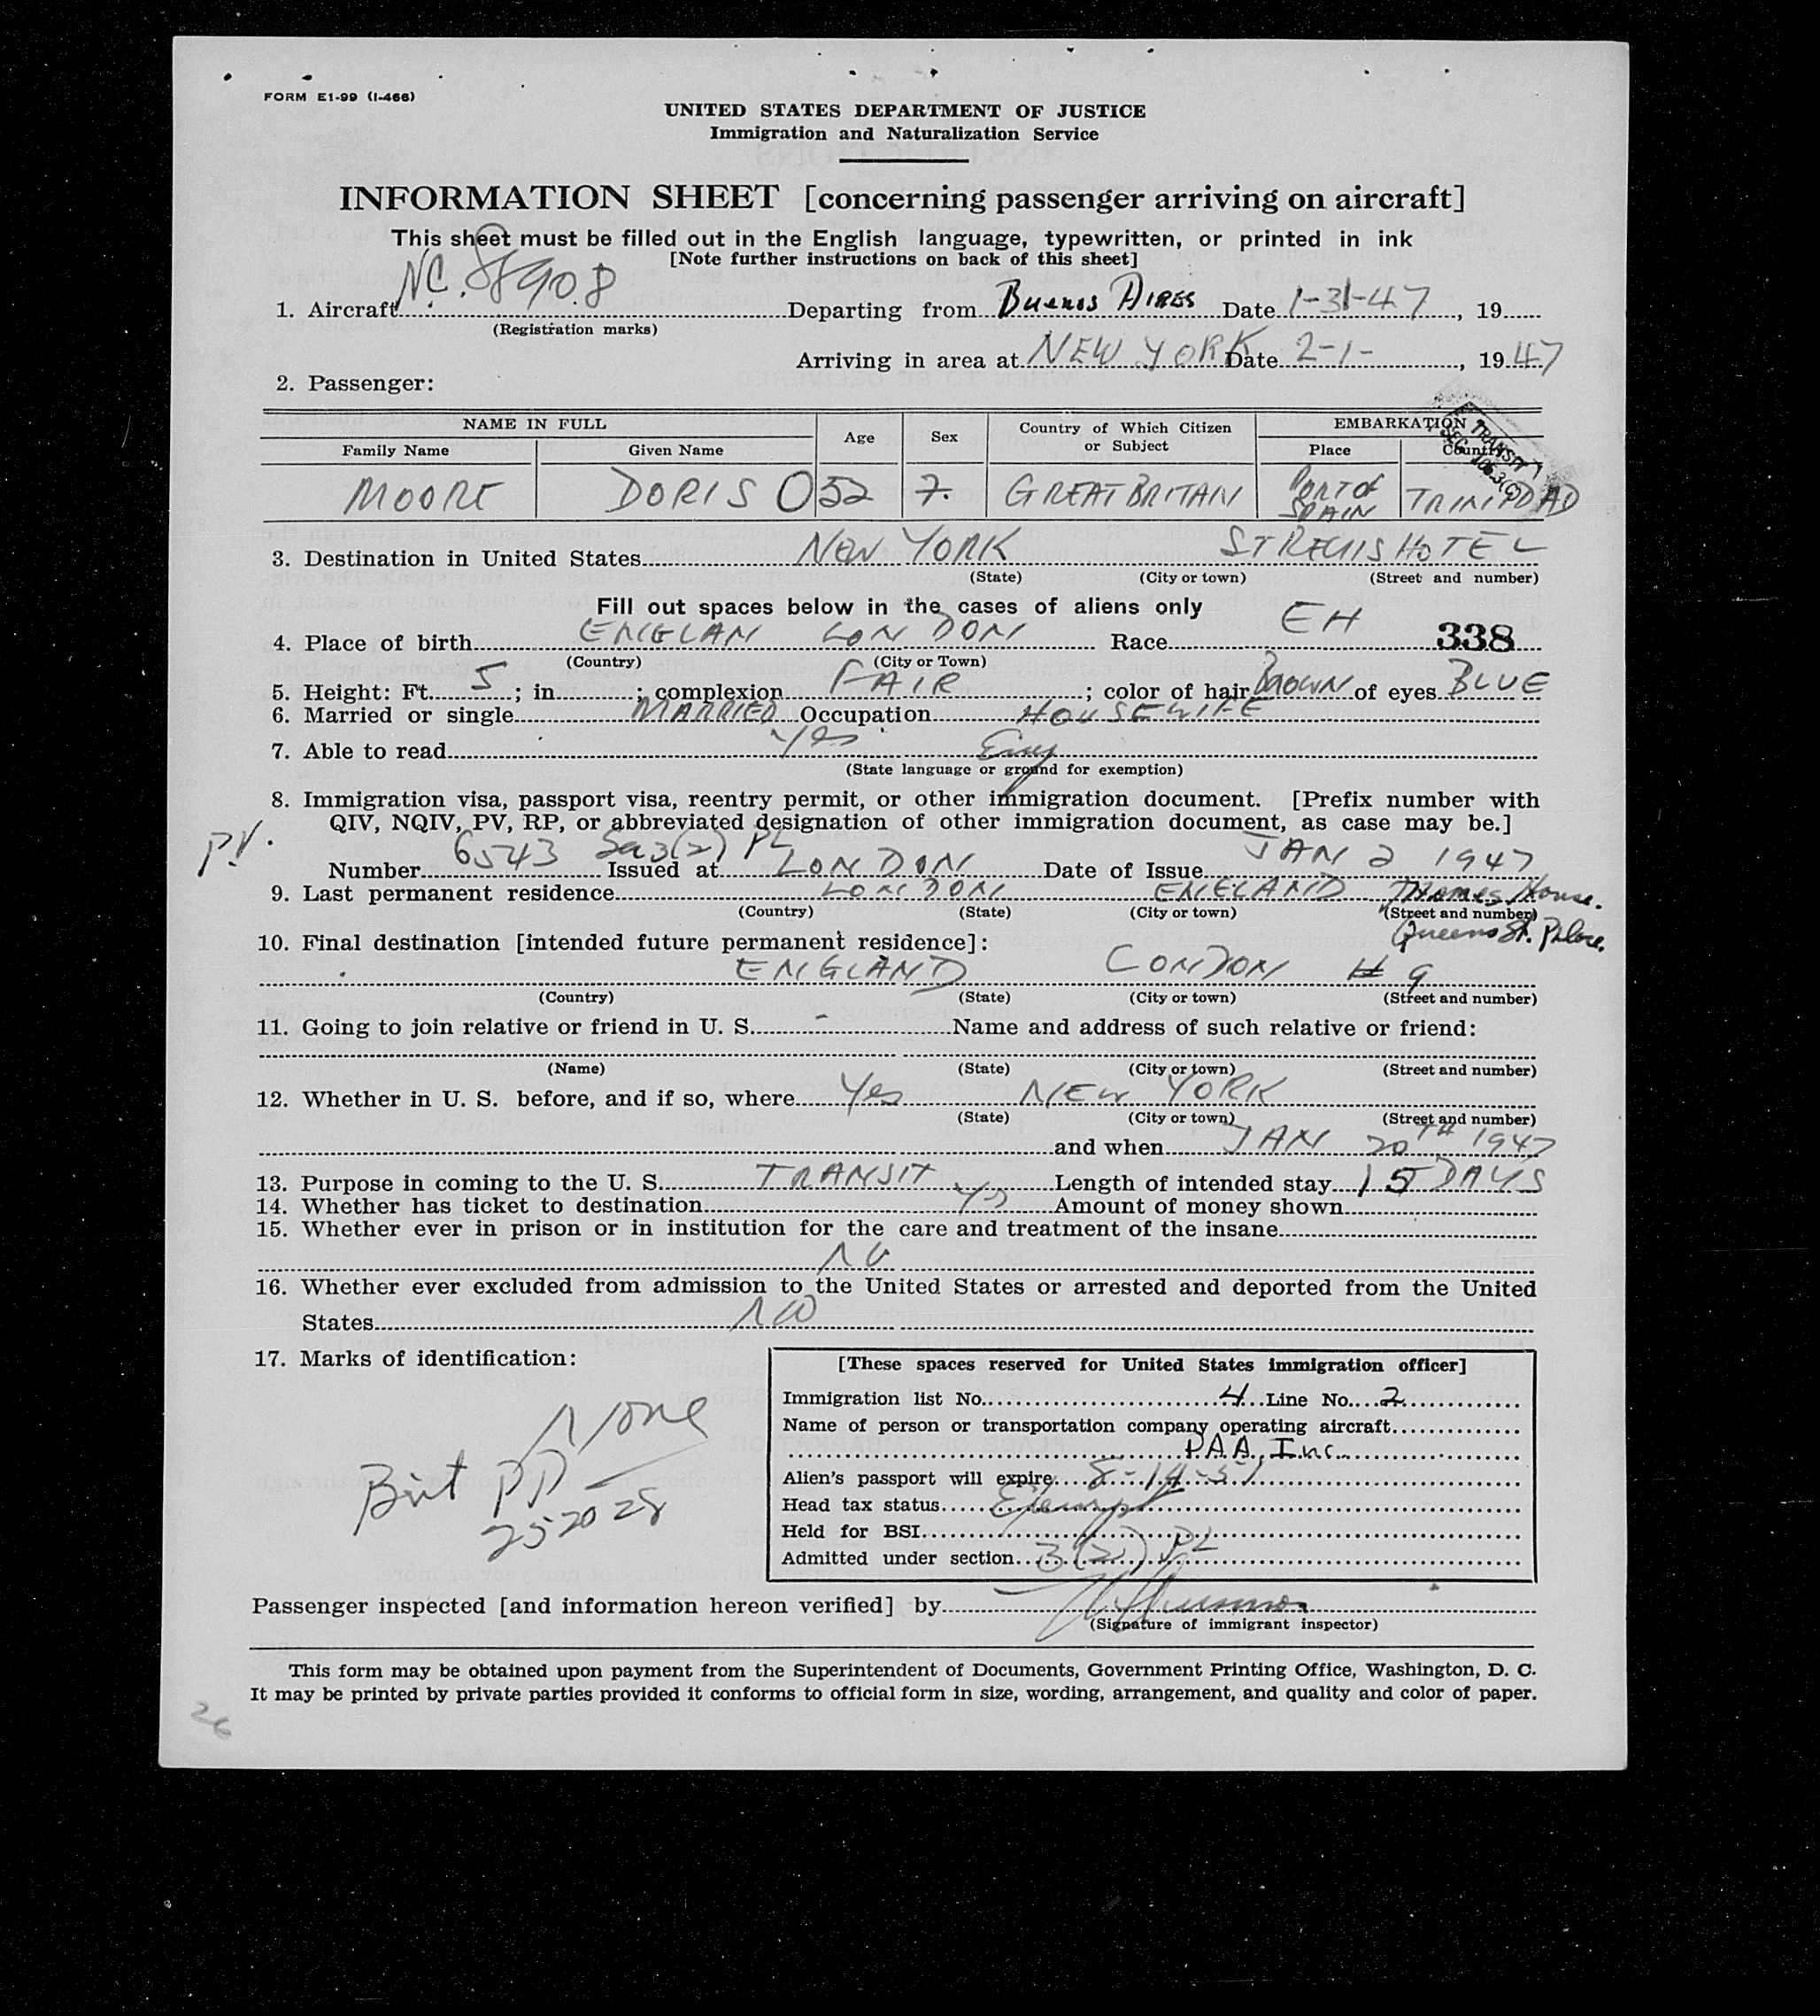 FORM E1-99 (I-466)
UNITED STATES DEPARTMENT OF JUSTICE
Immigration and Naturalization Service
INFORMATION SHEET [concerning passenger arriving on aircraft]
This sheet must be filled out in the English language, typewritten, or printed in ink
[Note further instructions on back of this sheet]
1. Aircraft NC. 88908 Departing from Buenos AIRES Date 1-31-47, 19
(Registration marks)
Arriving in area at NEW YORK Date 2-1-, 1947
2. Passenger:
NAME IN FULL Age Sex Country of Which Citizen or Subject EMBARKATION
Family Name Given Name Place Country
TRANSIT
MOORE DORIS O 52 F. GREAT BRITAIN PORT OF SPAIN TRINIDAD
3. Destination in United States NEW YORK ST REGIS HOTEL
(State) (City or town) (Street and number)
Fill out spaces below in the cases of aliens only
4. Place of birth ENGLAN LONDON Race EH 338
(Country) (City or Town)
5. Height: Ft. 5; in; complexion FAIR; color of hair BROWN of eyes BLUE
6. Married or single MARRIED Occupation HOUSEWIFE
7. Able to read Yes Eng
(State language or ground for exemption)
8. Immigration visa, passport visa, reentry permit, or other immigration document. [Prefix number with
QIV, NQIV, PV, RP, or abbreviated designation of other immigration document, as case may be.]
P.V. Number 6543 Sec 3(2) PL Issued at LONDON Date of Issue JAN 2 1947
9. Last permanent residence LONDON ENGLAND Thames House.
(Country) (State) (City or town) (Street and number)
Queens St. Place.
10. Final destination [intended future permanent residence]:
ENGLAND LONDON # 9
(Country) (State) (City or town) (Street and number)
11. Going to join relative or friend in U. S. - Name and address of such relative or friend:
(Name) (State) (City or town) (Street and number)
12. Whether in U. S. before, and if so, where Yes NEW YORK
(State) (City or town) (Street and number)
and when JAN 20TH 1947
13. Purpose in coming to the U. S. TRANSIT Length of intended stay 15 DAYS
14. Whether has ticket to destination Yes Amount of money shown
15. Whether ever in prison or in institution for the care and treatment of the insane
NO
16. Whether ever excluded from admission to the United States or arrested and deported from the United
States NO
17. Marks of identification:
None
Brit PP
252028
[These spaces reserved for United States immigration officer]
Immigration list No. 4 Line No. 2
Name of person or transportation company operating aircraft
P.A.A. Inc.
Alien's passport will expire 8-14-51
Head tax status Exempt
Held for BSI
Admitted under section 3(2) PL
Passenger inspected [and information hereon verified] by
(Signature of immigrant inspector)
This form may be obtained upon payment from the Superintendent of Documents, Government Printing Office, Washington, D. C.
It may be printed by private parties provided it conforms to official form in size, wording, arrangement, and quality and color of paper.
26